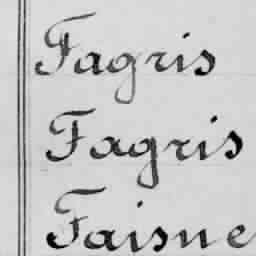 Fagris
Fagris
Faisne